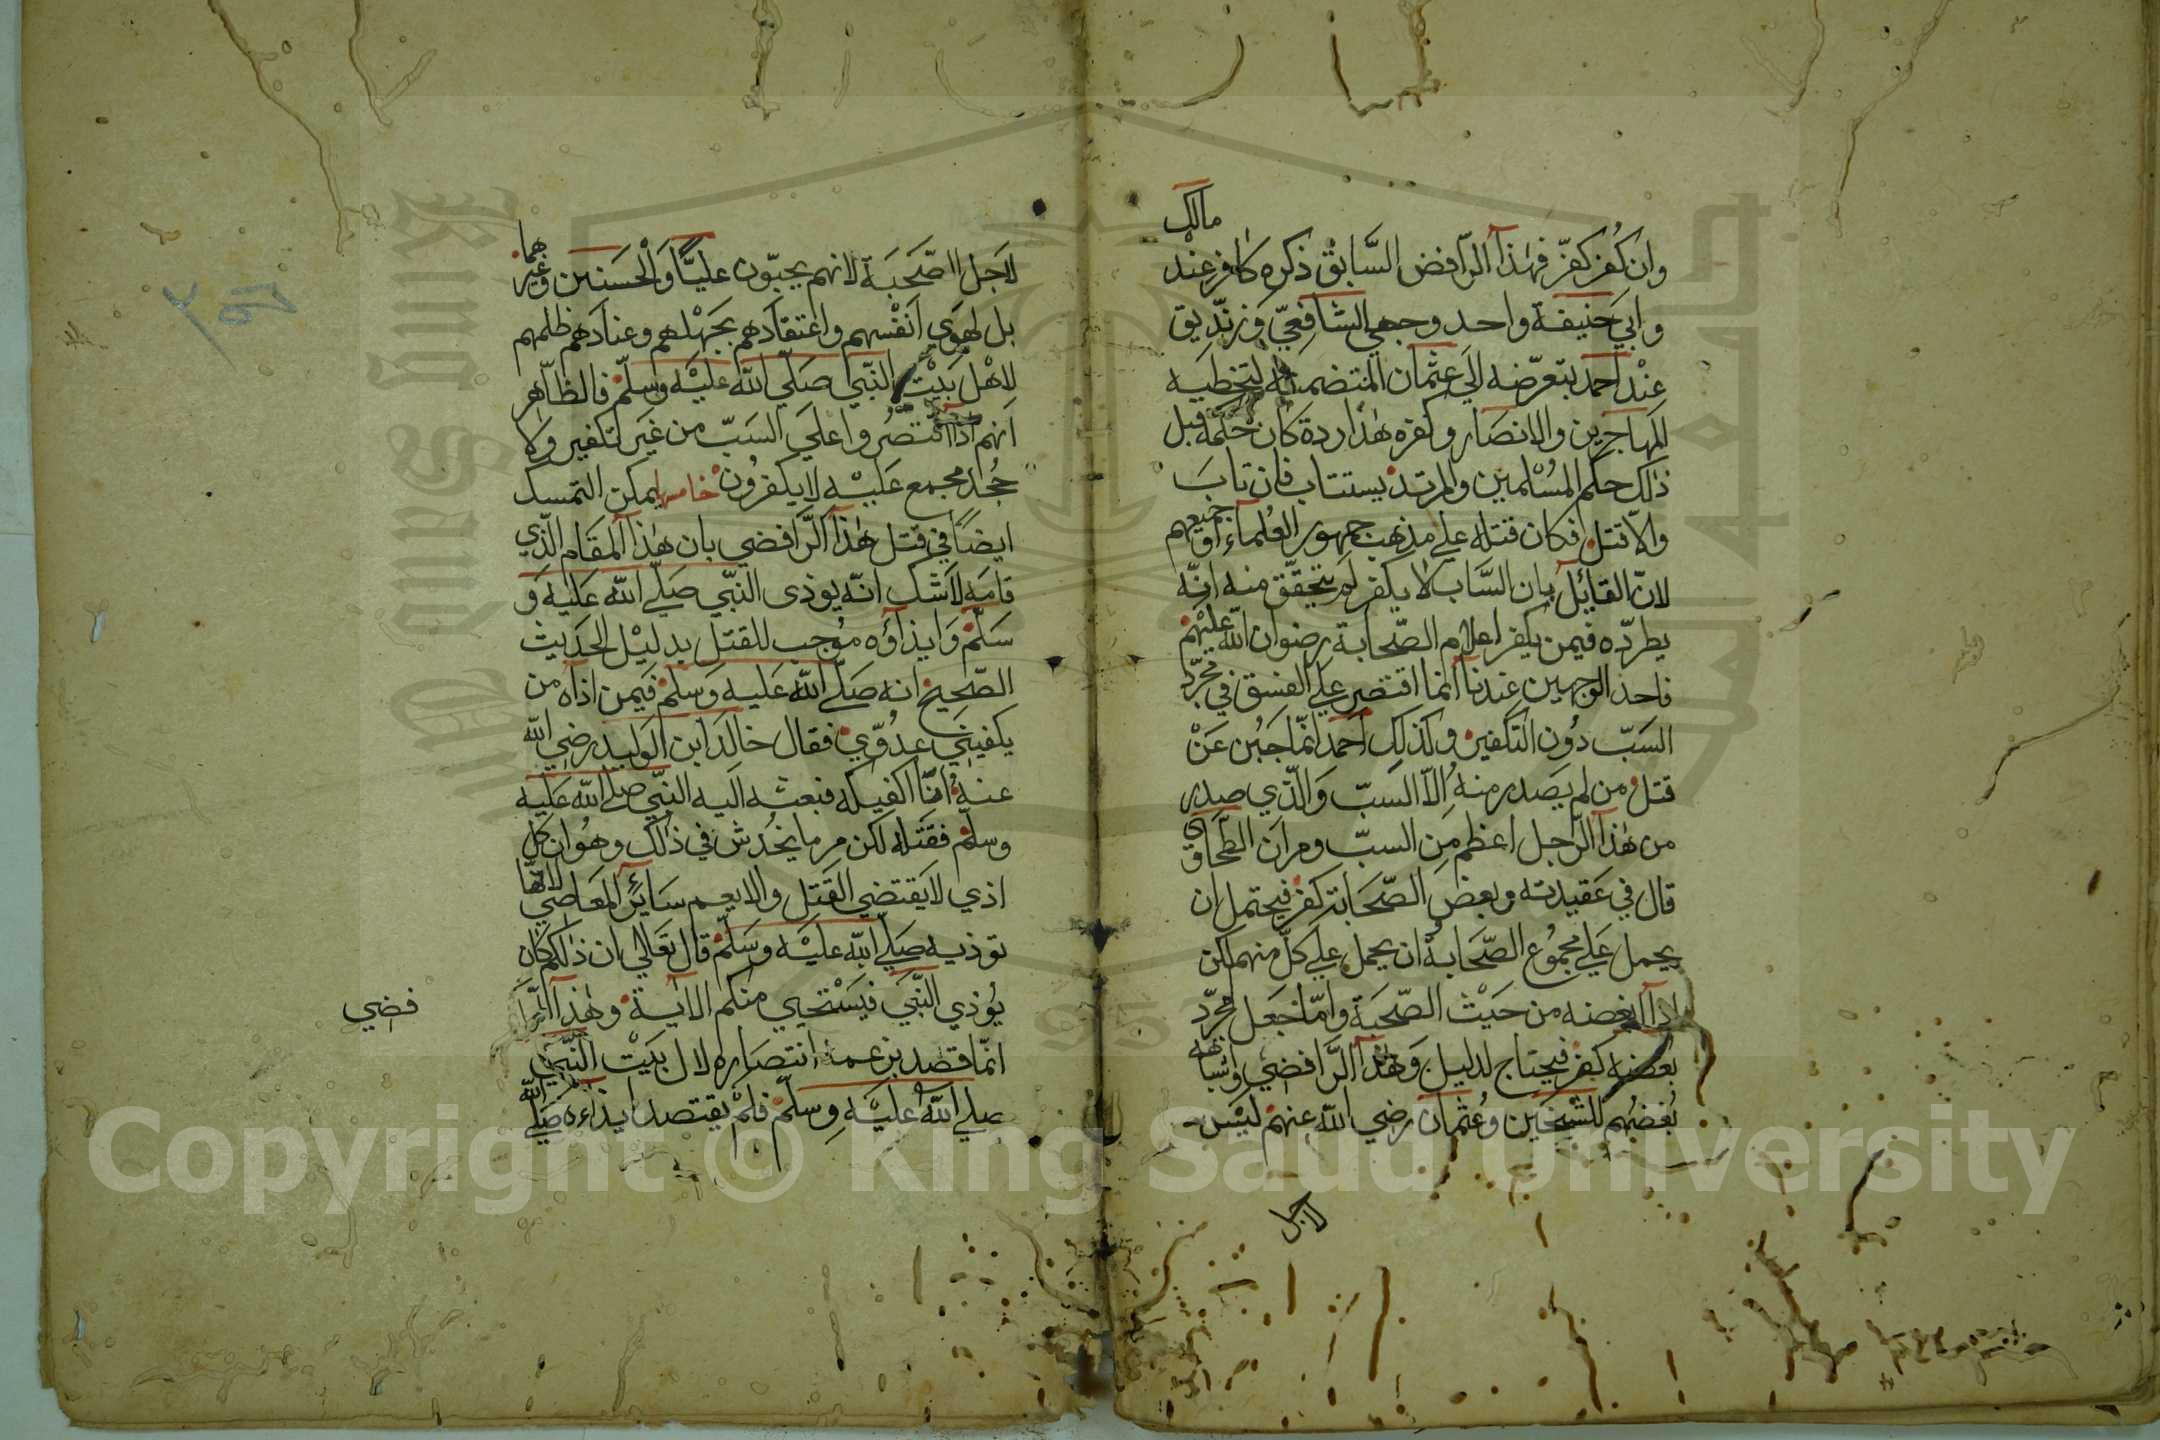 مالك
وان كُفر كفّر فهٰذا الرّافض السَّابقْ ذكره كافر عنْد
وابي حَنيفة واحد وجهي الشافعيّ وَزنْدّيق
عنْد احمد بتعرّضه الَي عثمان المتضمنة لتخطيه
المهاجرين والانصار وكفره هٰذا ردة كان حكمه قبل
ذلك حكم المُسْلمين والمرتد يستتاب فان تابَ
والّا قتل فكان قتله علي مذهب جمهور العُلماء اوْ جميعهم
لانّ القايل بان السَّاب لا يكفر لم يتحقّق منه انّه
يطردّه فيمن يكفر اعلام الصّحابة رضوان اللّه عليْهمْ
فاحد الوجهين عندنا انما اقتصر علي الفسق في مجرّد
السَبّ دوُن التكفير وكذلك احمد انّما جَبُن عَنْ
قتل من لم يَصدر منهُ الاّ السبّ وَالّذي صدر
من هٰذا الرّاجل اعظم مِن السبّ ومر ان الطّحاوي
قال في عَقيدته وبغض الصّحَابة كفر فيحتمل ان
يحمل عَلي مجمُوع الصّحَابة ان يحمل علي كلّ منهم لكن
اذا ابغضه من حَيْث الصّحبَة وامّا جَعل مجرّد
بغضه كفر فيحتاج لدليل وَهٰذا الرَّافضي واشباهه
بُغضُهم للشيخَين وعُثمان رضي اللّه عنهمْ ليْسَ
لاجل
لاجَل الصّحَبَة لانهم يحبّون عليًّا وَالْحسَنين وغيرهما
بل لهوَي اَنفْسِهم واعْتقادَهم بجَهْلهم وعنادهم ظلمهم
لاهْل بَيْت النّبي صَلّي اللّه عليْه وَسلّمْ فالظّاهر
اَنهم اذا اقتصُروا علَي السَبّ من غيَر تكفير وَلا
جُحد مجمع عَليْه لا يكفرُون خامسها يمكن التمسك
ايضًا في قتل هٰذا الرَّافضي بان هٰذا المقَام الّذي
قامَه لاَ شك انّه يوذي النّبي صَلّي اللّه عَليه وَ
سَلّمْ وَايذاؤه موُجب للقتل بدليْل الحَديث
الصّحيح انه صَلّي اللّه عَليه وَسلمْ فيمن اذاه من
يكفينيَ عدوُّي فقال خالد ابن الوَليد رضي اللّه
عنهُ انا اكفيكه فبعثه اليه النبّي صلي اللّه عَليْه
وسلّم فقَتله لكن مر ما يخُدش في ذلك وهُو ان كل
اذي لا يَقتضي القَتل والا يعم سَائر المعَاصي لانها
توذيه صَلّي اللّه عليْه وسَلّمْ قال تعَالي ان ذلكم كان
يُوذي النّبَي فيَسْتحيي منكم الايَة وهٰذا الرّا
فضي
انّما قصَد بزعمه انتصَاره لال بيَتْ النّبَي
صلي اللّه عليْه وسلّمْ فلمْ يقتصد ايذاءه صَلي اللّه